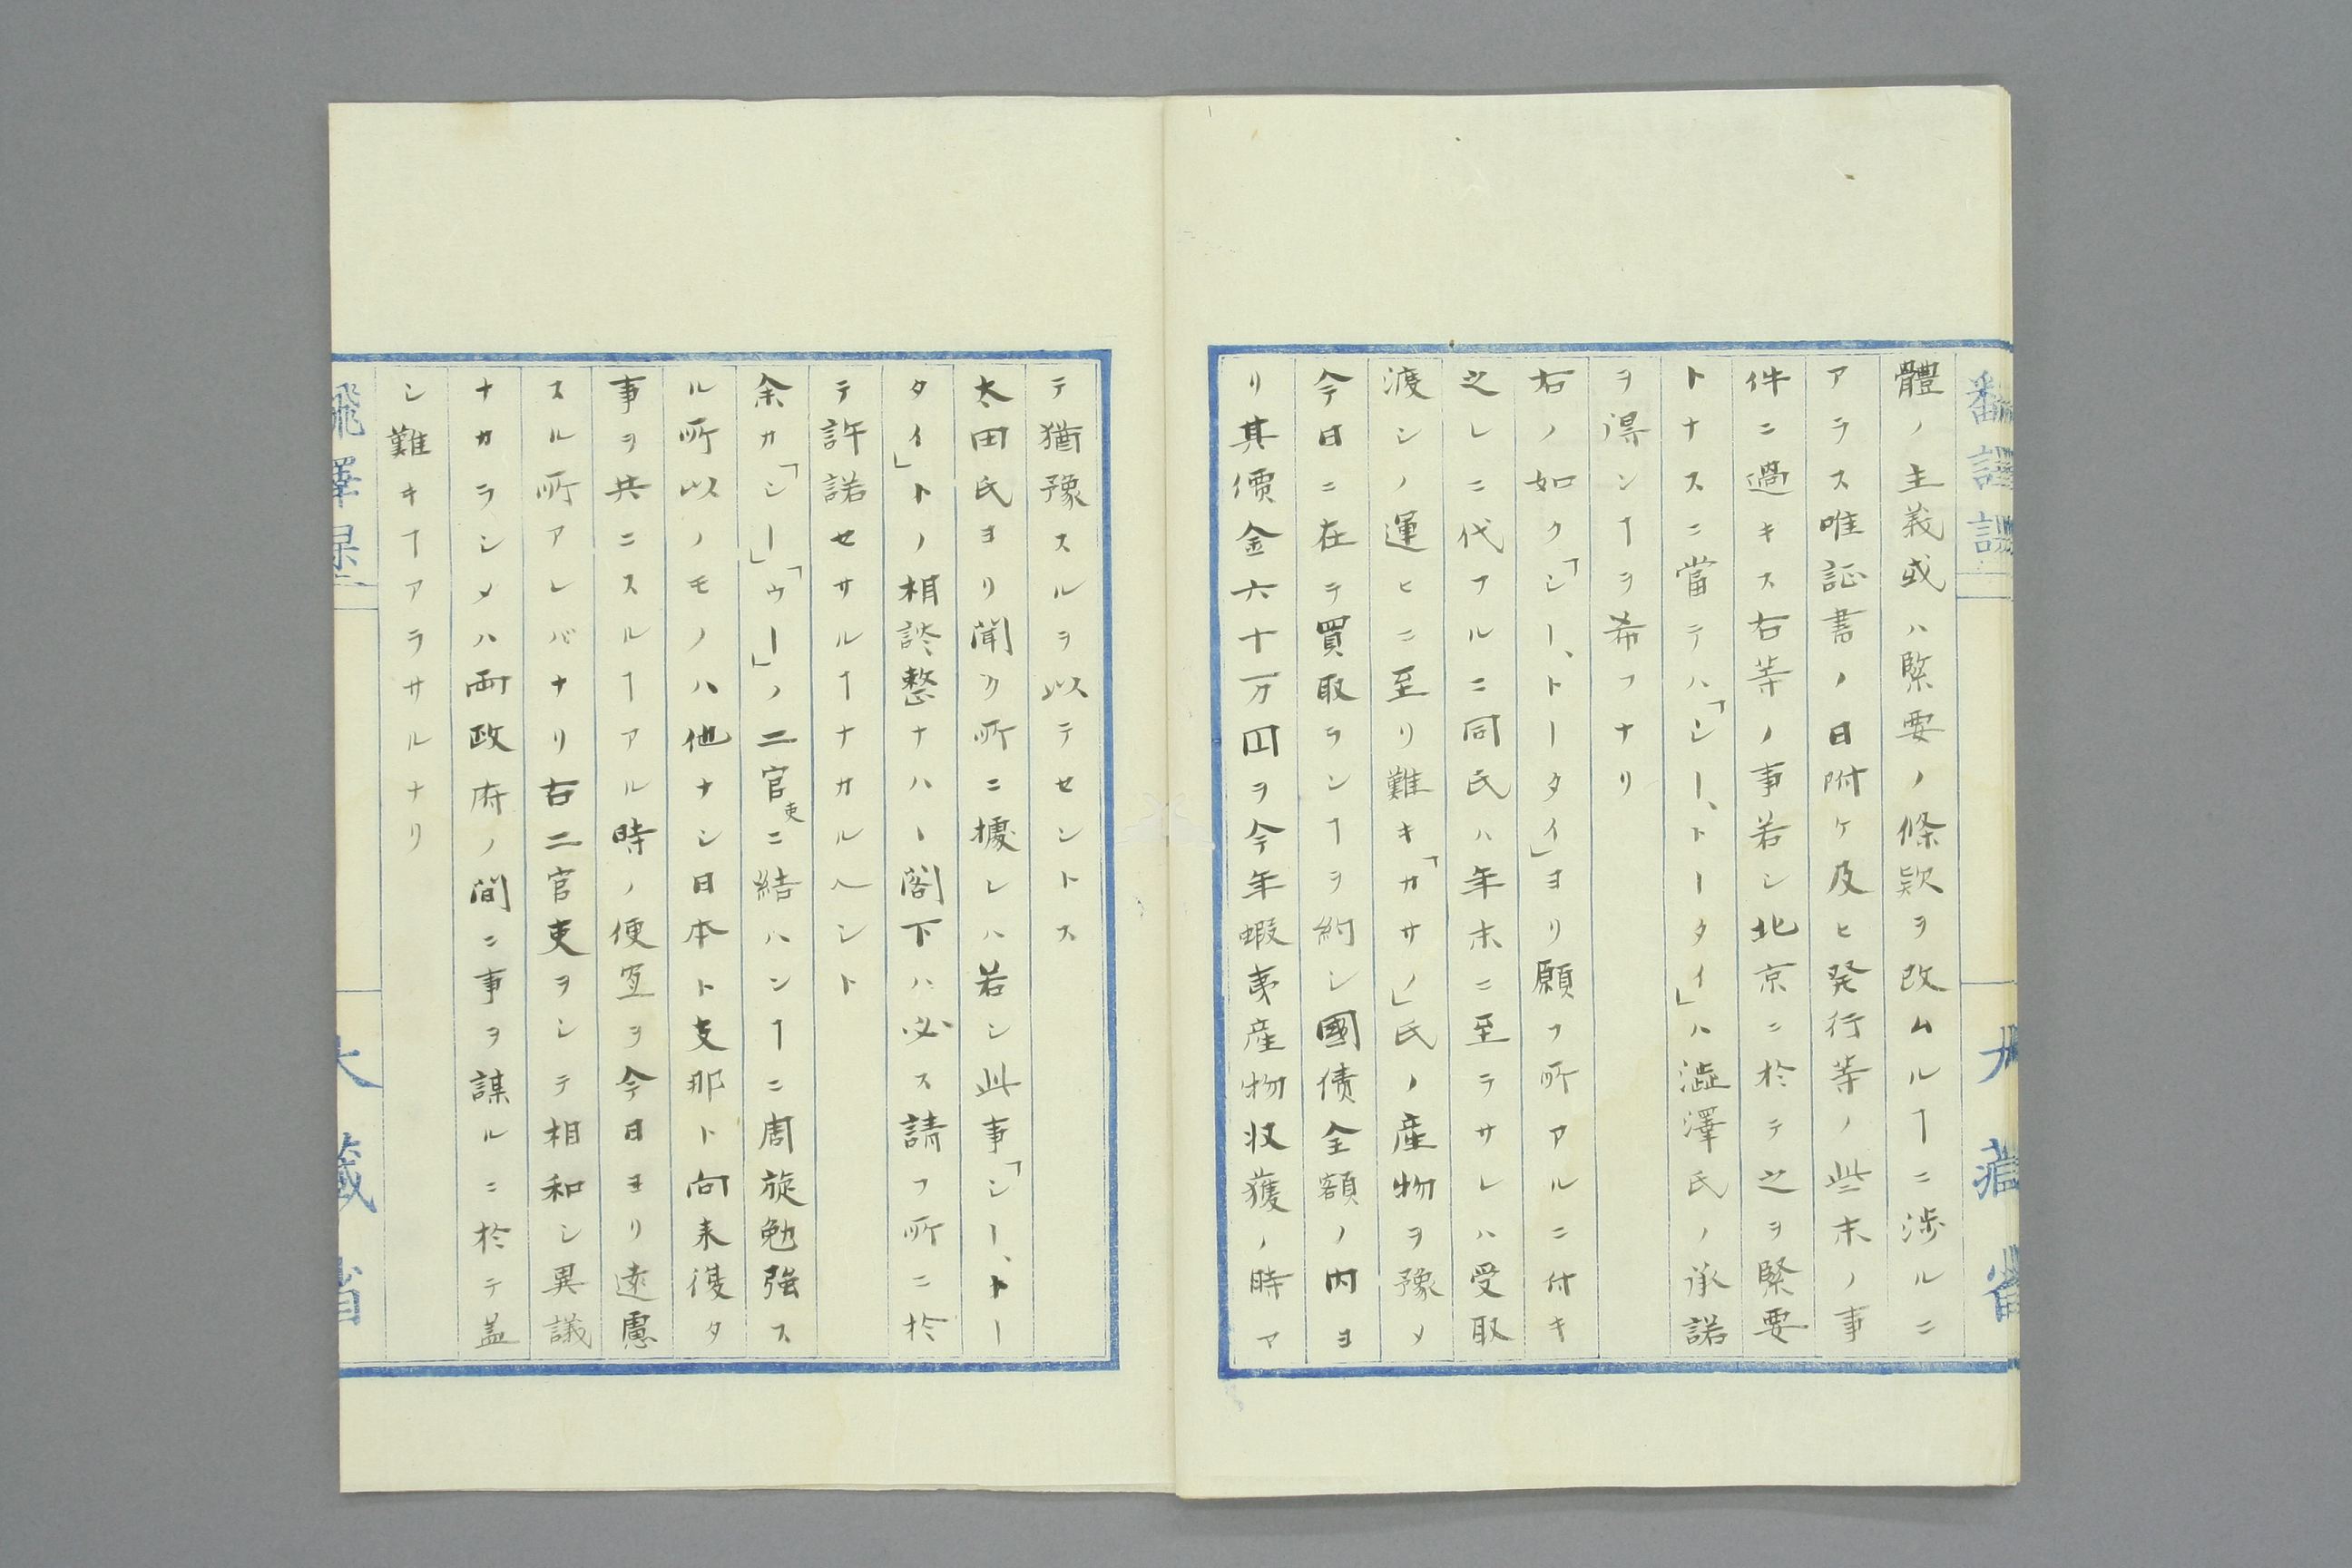 體ノ主義或ハ緊要ノ條款ヲ改ムルヿニ渉ルニ
アラス唯証書ノ日附ケ及ヒ発行等ノ些末ノ事
件ニ過キス右等ノ事若シ北京ニ於テ之ヲ緊要
トナスニ當テハ「シー、トータイ」ハ澁澤氏ノ承諾
ヲ得ンヿヲ希フナリ
右ノ如ク「シー、トータイ」ヨリ願フ所アルニ付キ
之レニ代フルニ同氏ハ年末ニ至ラサレハ受取
渡シノ運ヒニ至リ難キ「カサノ」氏ノ産物ヲ豫メ
今日ニ在テ買取ランヿヲ約シ國債全額ノ内ヨ
リ其價金六十万円ヲ今年蝦夷産物収獲ノ時マ
テ猶豫スルヲ以テセントス
太田氏ヨリ聞ク所ニ據レハ若シ此事「シー、トー
タイ」トノ相談整ナハヽ閣下ハ必ス請フ所ニ於
テ許諾セサルヿナカルヘシト
余カ「シー」「ウー」ノ二官吏ニ結ハンヿニ周旋勉強ス
ル所以ノモノハ他ナシ日本ト支那ト向来復タ
事ヲ共ニスルヿアル時ノ便宜ヲ今日ヨリ遠慮
スル所アレバナリ右二官吏ヲシテ相和シ異議
ナカラシメハ両政府ノ間ニ事ヲ謀ルニ於テ盖
シ難キヿアラサルナリ
大藏省